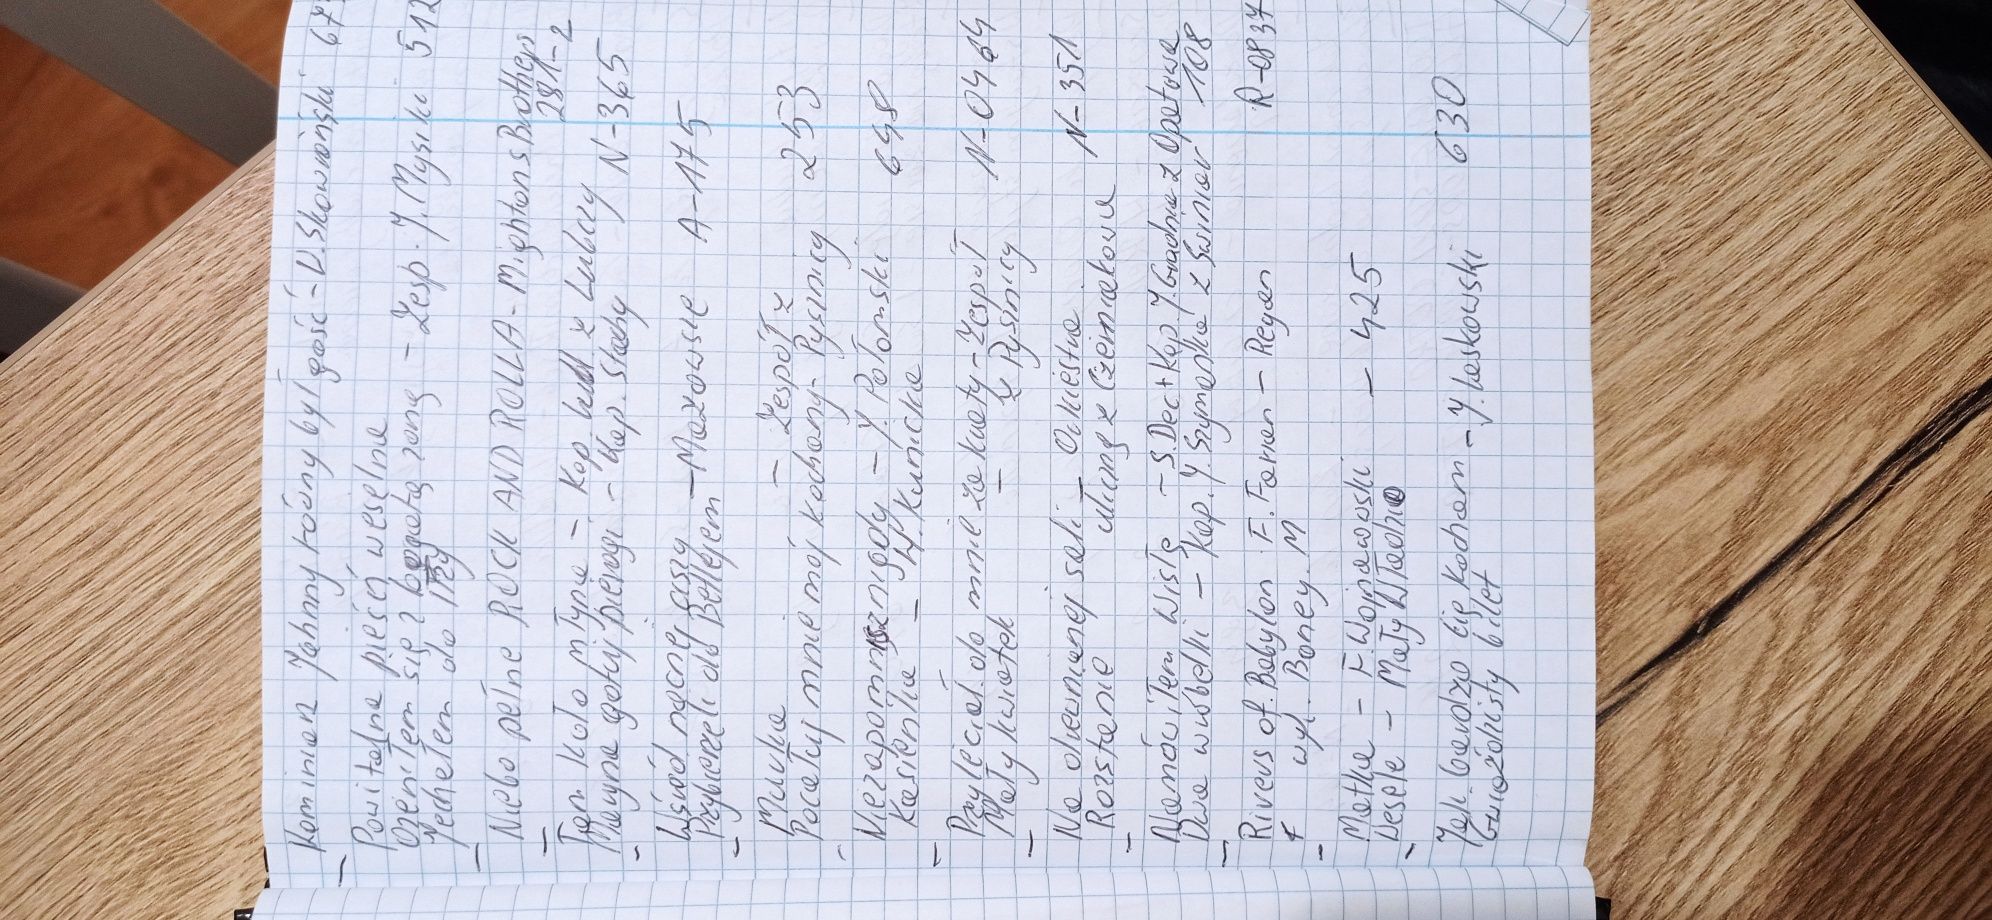 Kominiarz Johnny równy był gość - D. Skowroński 67
Powitalna pieśń weselna
Ożeniłem się z bogatą żoną - Zesp. J. Mysiki 512
Jechałem do
Niebo pełne ROCK AND ROLLA - Mightons Brothers
281-2
Tam koło młyna - Kap. z Lubczy
Maryna gotuj pierogi - Kap. Stachy N-365
Wśród nocnej ciszy
Przybieżeli do Betlejem - Mazowsze A-175
Muuka - Zespół z
Pocałuj mnie mój kochany - Pysznicy 253
Niezapomnę nigdy - J. Połomski
Kasieńka - H. Kunicka 648
Przyleciał do mnie zakuaty - Zespół
Mały kwiatek - z Pysznicy N-0464
Na drewnianej sali - Orkiestra
Rozstanie N-351
Namówiłem Wisłę - S. Dec + Kap J Gradnia z Opatowa
Dwa wróbelki - Kap. J. Szymańka z Świniar 108
Rivers of Babylon F. Farian - Regan R-0837
wyk. Boney. M
Matka - F. Wojnawski
Wesele - Mały Władzio - 425
Jak bardzo cię kocham - J. Laskowski 630
Gwiaździsty bilet